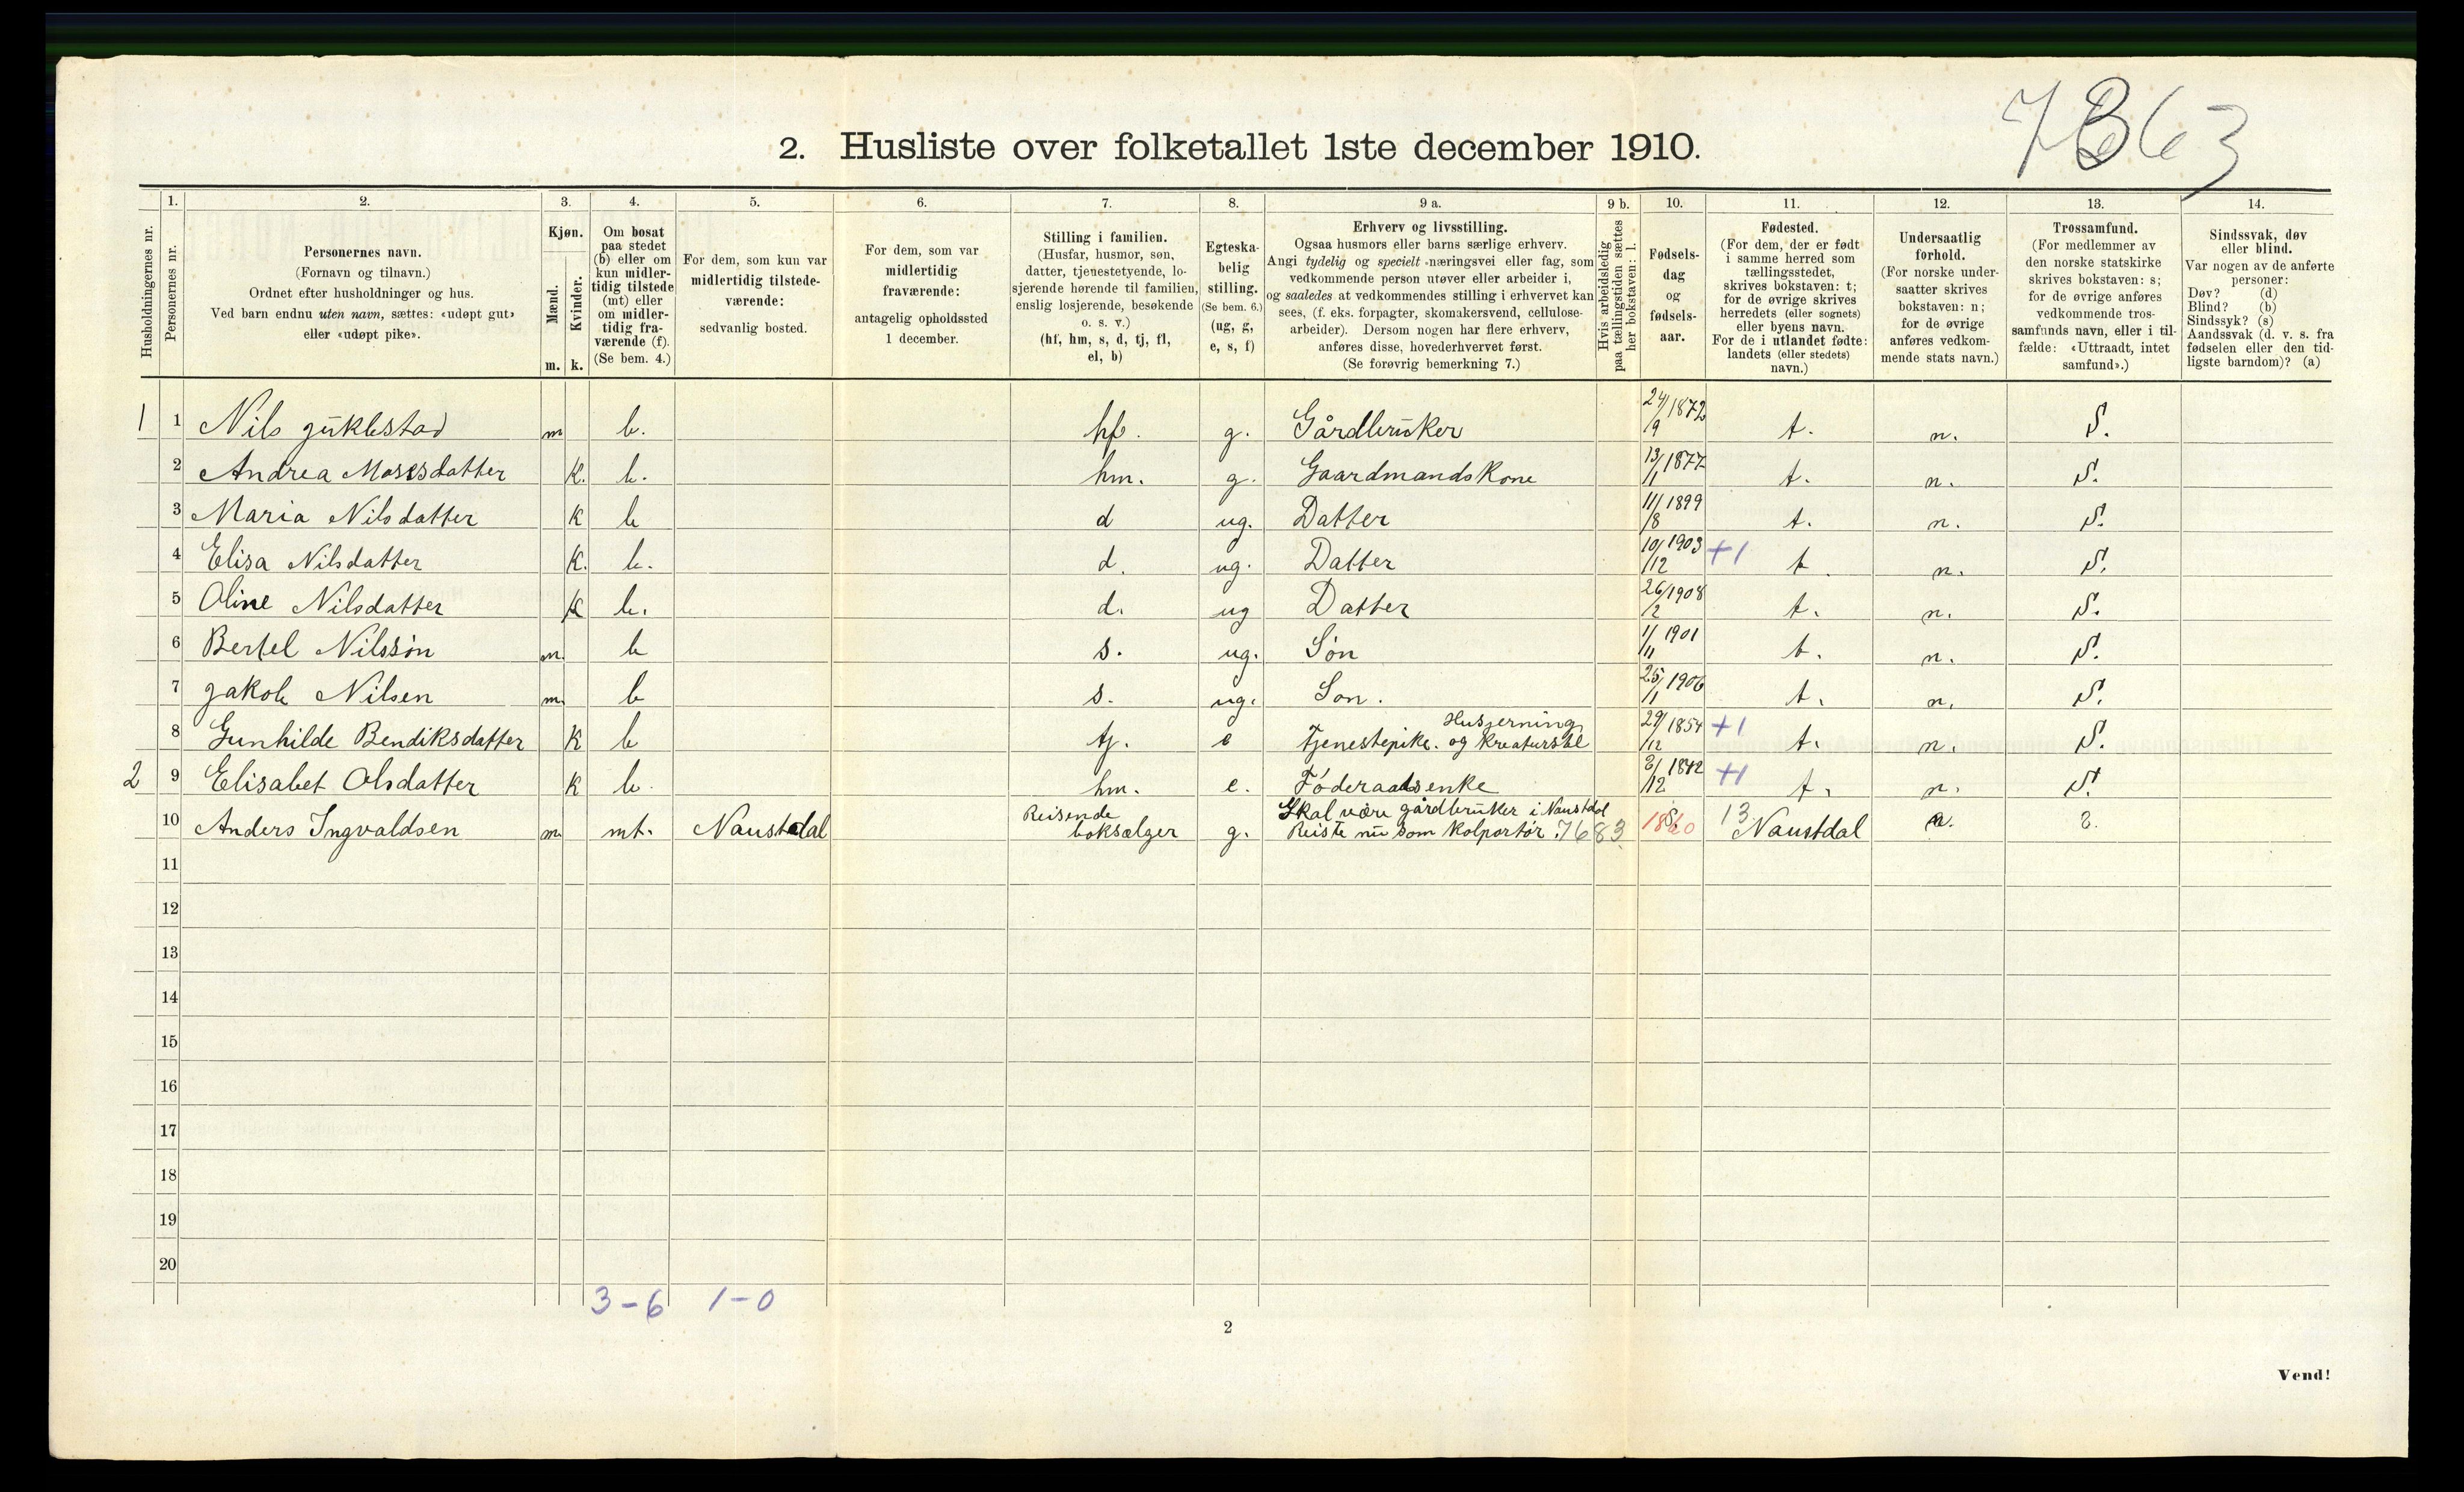 7863
2. Husliste over folketallet 1ste december 1910.
Husholdningernes nr.
1. Personernes nr.
2. Personernes navn.
(Fornavn og tilnavn.)
Ordnet efter husholdninger og hus.
Ved barn endnu uten navn, sættes: «udøpt gut»
eller «udøpt pike».
3. Kjøn.
Mænd. m.
Kvinder. k.
4. Om bosat
paa stedet
(b) eller om
kun midler-
tidig tilstede
(mt) eller
om midler-
tidig fra-
værende (f).
(Se bem. 4.)
5. For dem, som kun var
midlertidig tilstede-
værende:
sedvanlig bosted.
6. For dem, som var
midlertidig
fraværende:
antagelig opholdssted
1 december.
7. Stilling i familien.
(Husfar, husmor, søn,
datter, tjenestetyende, lo-
sjerende hørende til familien,
enslig losjerende, besøkende
o. s. v.)
(hf, hm, s, d, tj, fl,
el, b)
8. Egteska-
belig
stilling.
(Se bem. 6.)
(ug, g,
e, s, f)
9 a. Erhverv og livsstilling.
Ogsaa husmors eller barns særlige erhverv.
Angi tydelig og specielt næringsvei eller fag, som
vedkommende person utøver eller arbeider i,
og saaledes at vedkommendes stilling i erhvervet kan
sees, (f. eks. forpagter, skomakersvend, cellulose-
arbeider). Dersom nogen har flere erhverv,
anføres disse, hovederhvervet først.
(Se forøvrig bemerkning 7.)
9 b. Hvis arbeidsledig
paa tællingstiden sættes
her bokstaven: l.
10. Fødsels-
dag
og
fødsels-
aar.
11. Fødested.
(For dem, der er født
i samme herred som
tællingsstedet,
skrives bokstaven: t;
for de øvrige skrives
herredets (eller sognets)
eller byens navn.
For de i utlandet fødte:
landets (eller stedets)
navn.)
12. Undersaatlig
forhold.
(For norske under-
saatter skrives
bokstaven: n;
for de øvrige
anføres vedkom-
mende stats navn.)
13. Trossamfund.
(For medlemmer av
den norske statskirke
skrives bokstaven: s;
for de øvrige anføres
vedkommende tros-
samfunds navn, eller i til-
fælde: «Uttraadt, intet
samfund».)
14. Sindssvak, døv
eller blind.
Var nogen av de anførte
personer:
Døv? (d)
Blind? (b)
Sindssyk? (s)
Aandssvak (d. v. s. fra
fødselen eller den tid-
ligste barndom)? (a)
1 1 Nils Jüklestad m b. hf. g. Gårdbrüker 24/9 1872 t. n. S.
2 Andrea Mosesdatter K. b. hm. g. Gaardmandskone 13/1 1877 t. n. S.
3 Maria Nilsdatter K b d ug. Datter 11/8 1899 t. n. S.
4 Elisa Nilsdatter K. b. d. ug. Datter 10/12 1903 +1 t. n. S.
5 Oline Nilsdatter K b. d. ug Datter 26/2 1908 t. n. S.
6 Bertel Nilssön m. b s. ug. Sön 1/11 1901 t. n. S.
7 Jakob Nilsen m. b s. ug. Son. 25/1 1906 t. n. S.
8 Gunhilde Bendiksdatter K b tj. e Tjenestepike. Husjerning og Kreaturstel 29/12 1854 +1 t. n. S.
2 9 Elisabet Olsdatter K b. hm. e. Föderaadsenke 3/12 1842 +1 t. n. S.
10 Anders Ingvaldsen m. mt. Naustdal Reisende boksælger g. Skal være gårdbrüker i Naustdal
Reiste nü som Kolportör. 7683 1860 13 Naustdal n. S.
11
12
13
14
15
16
17
18
19
20
3-6 1-0
2
Vend!